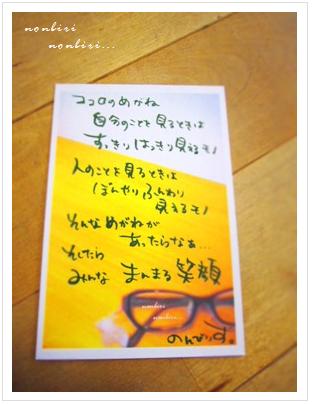 nonbiri
nonbiri...
ココロのめがね
自分のことを見るときは
すっきりはっきり見えるモノ
人のことを見るときは
ぼんやりふんわり
見えるモノ
そんなめがねが
あったらなぁ…
そしたら
みんな まんまる笑顔
nonbiri
nonbiri...
のんびりす。